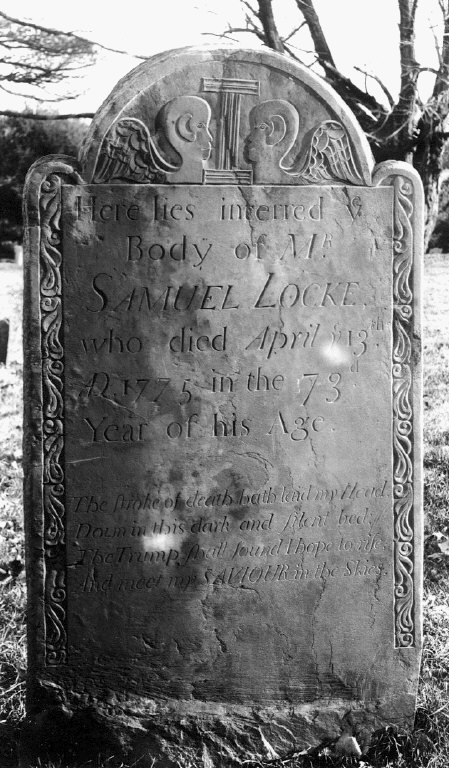 Here lies interred yᵉ
Body of Mʀ.
SAMUEL LOCKE,
who died April yᵉ 13ᵗʰ
AD. 1775 in the 73ᵈ
Year of his Age.
The ſtroke of death hath laid my Head,
Down in this dark and ſilent bed;
The Trump ſhall ſound I hope to riſe,
And meet my SAVIOUR in the Skies.